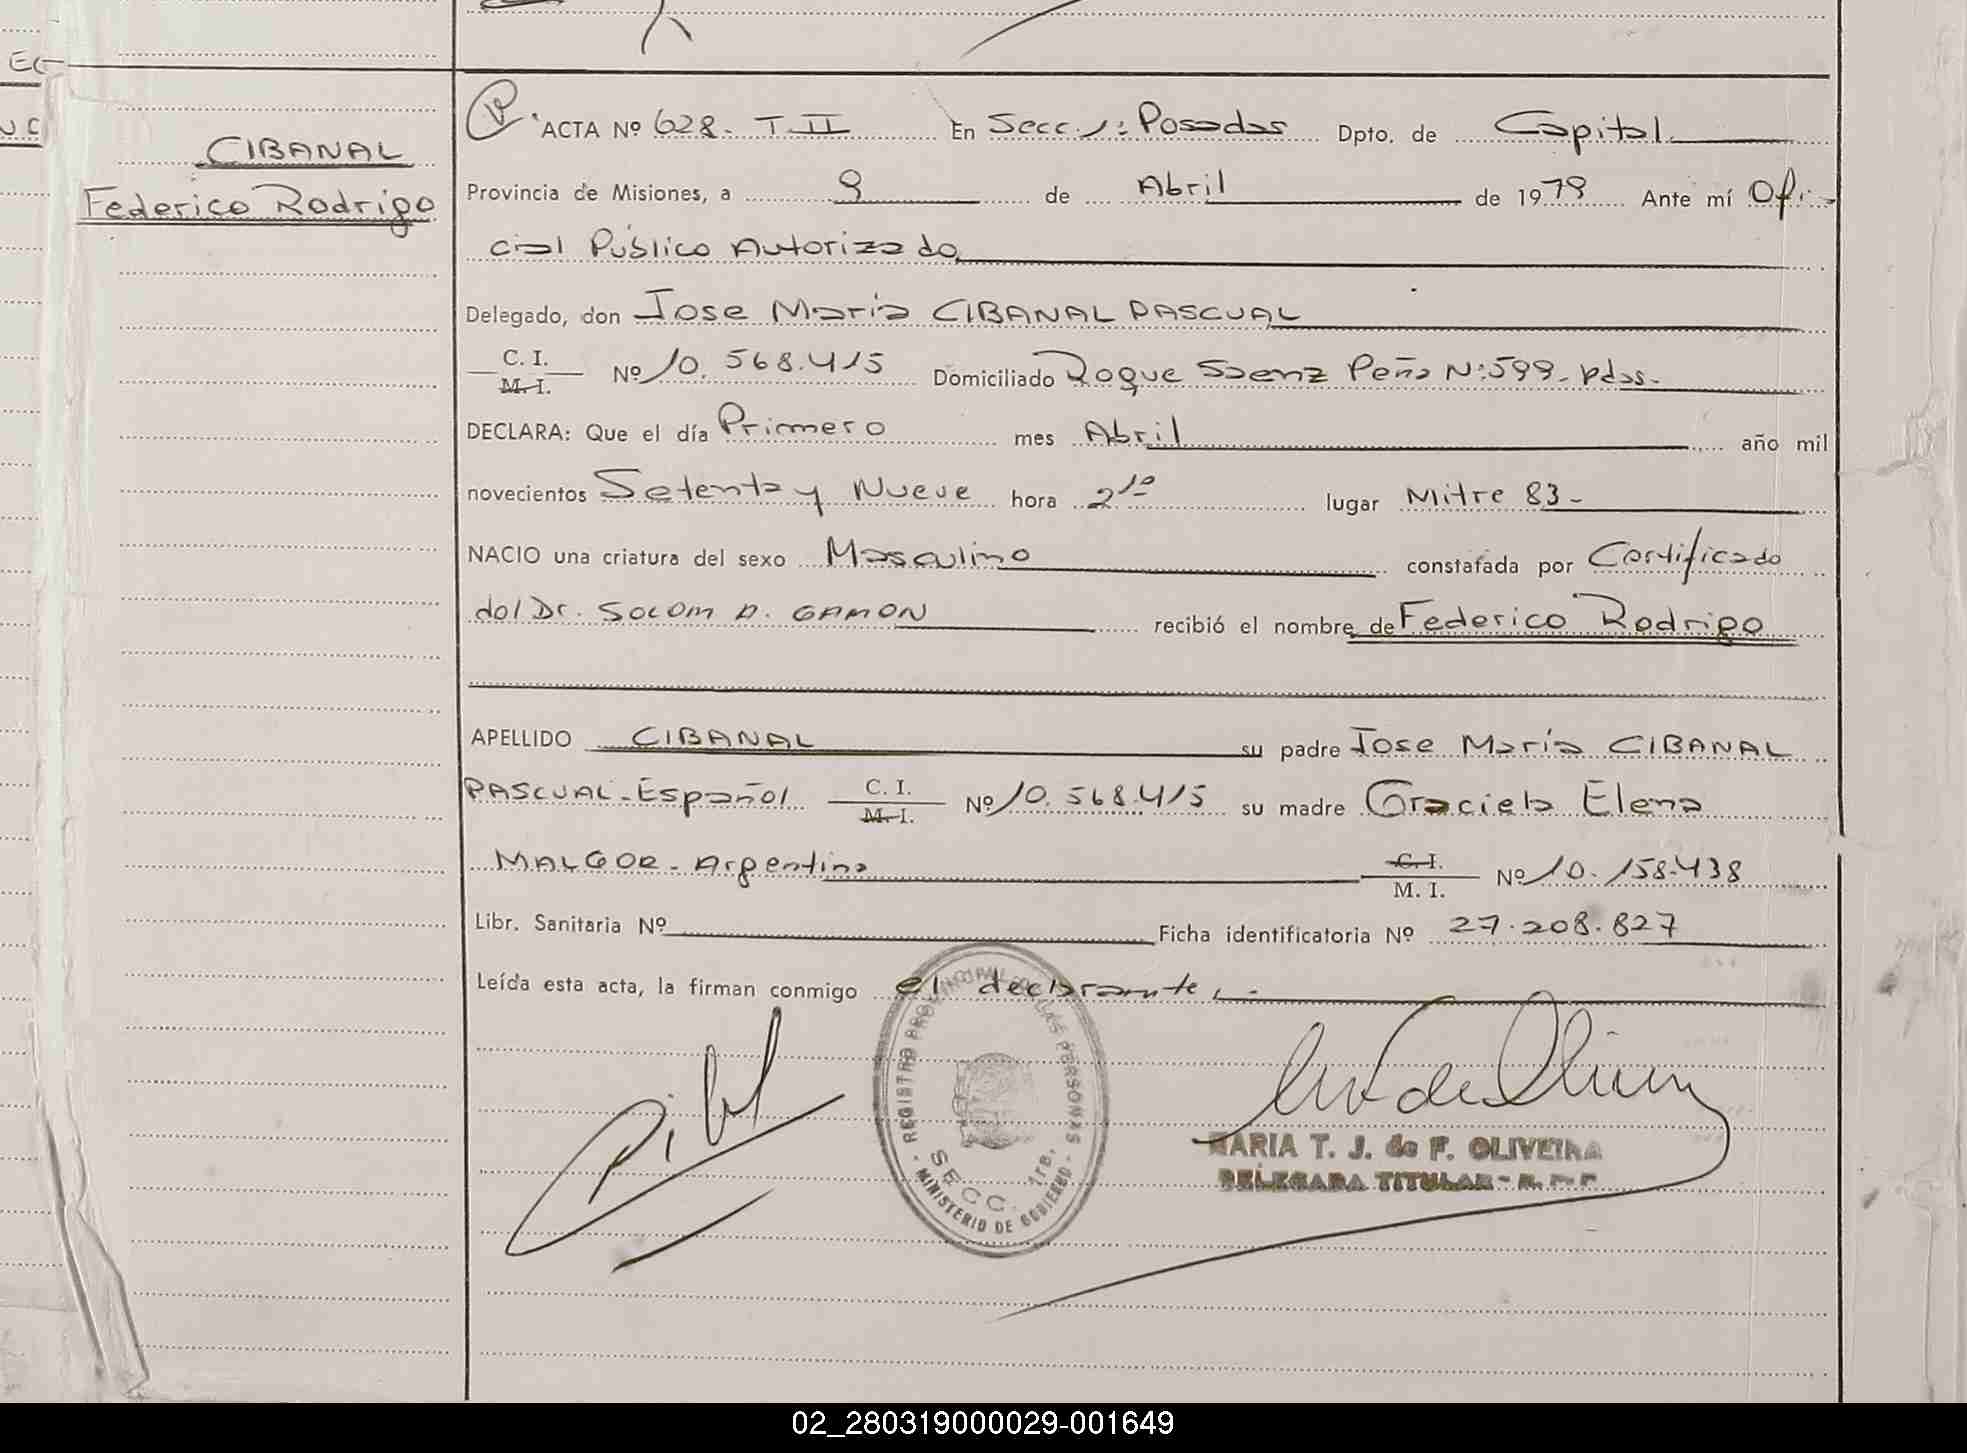 CIBANAL
Federico Rodrigo
ACTA Nº 628. T II En Secc. 1: Posadas Dpto. de Capital
Provincia de Misiones, a 9 de Abril de 1979 Ante mí Ofi-
cial Público Autorizado
Delegado, don Jose María CIBANAL PASCUAL
C. I.
M. I. Nº 10.568.415 Domiciliado Roque Saenz Peña N: 599. Pdas.
DECLARA: Que el día Primero mes Abril año mil
novecientos Setenta y Nueve hora 2 10 lugar Mitre 83-
NACIO una criatura del sexo Masculino constatada por Certificado
del Dr. SOLOM A. GAMON recibió el nombre de Federico Rodrigo
APELLIDO CIBANAL su padre Jose María CIBANAL
PASCUAL - Español C. I.
M. I. Nº 10.568.415 su madre Graciela Elena
MALGOR - Argentina C. I.
M. I. Nº 10.158.438
Libr. Sanitaria Nº Ficha identificatoria Nº 27.208.827
Leída esta acta, la firman conmigo el declarante,.-
REGISTRO PROVINCIAL DE LAS PERSONAS
SECC. 1ra.
MINISTERIO DE GOBIERNO
MARIA T. J. de F. OLIVEIRA
DELEGADA TITULAR - R. P. P.
02_280319000029-001649